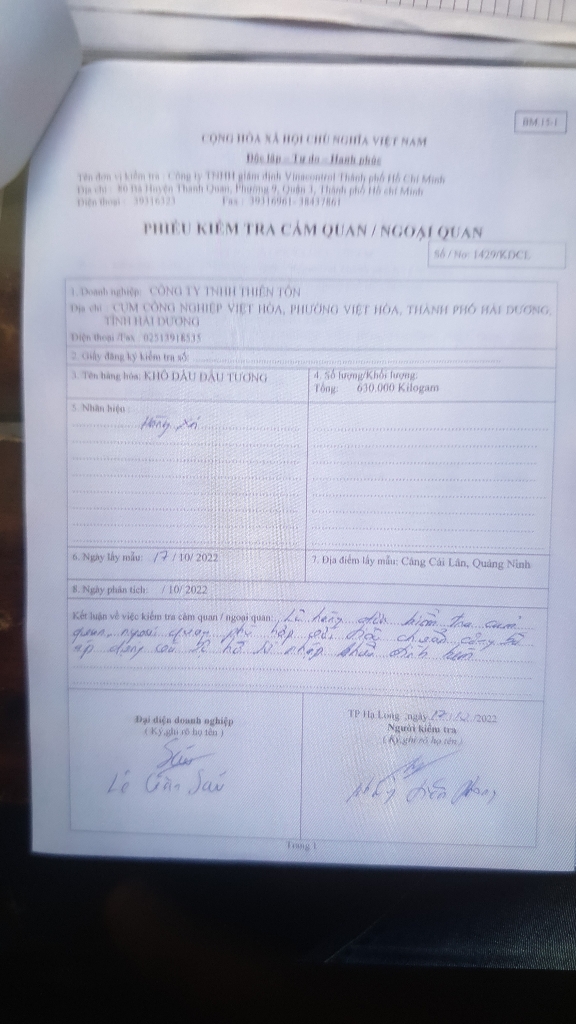 BM 15-1
CỘNG HÒA XÃ HỘI CHỦ NGHĨA VIỆT NAM
Độc lập – Tự do – Hạnh phúc
Tên đơn vị kiểm tra : Công ty TNHH giám định Vinacontrol Thành phố Hồ Chí Minh
Địa chỉ : 80 Bà Huyện Thanh Quan, Phường 9, Quận 3, Thành phố Hồ chí Minh
Điện thoại : 39316323 Fax : 39316961- 38437861
PHIẾU KIỂM TRA CẢM QUAN / NGOẠI QUAN
Số / No: 1429/KDCL
1. Doanh nghiệp: CÔNG TY TNHH THIÊN TÔN
Địa chỉ : CỤM CÔNG NGHIỆP VIỆT HÒA, PHƯỜNG VIỆT HÒA, THÀNH PHỐ HẢI DƯƠNG,
TỈNH HẢI DƯƠNG
Điện thoại /Fax: 02513918535
2. Giấy đăng ký kiểm tra số:
3. Tên hàng hóa: KHÔ DẦU ĐẬU TƯƠNG
4. Số lượng/Khối lượng:
Tổng: 630.000 Kilogam
5. Nhãn hiệu :
Hàng xá
6. Ngày lấy mẫu: 17 / 10/ 2022
7. Địa điểm lấy mẫu: Cảng Cái Lân, Quảng Ninh
8. Ngày phân tích: / 10/ 2022
Kết luận về việc kiểm tra cảm quan / ngoại quan: Lô hàng được kiểm tra cảm
quan, ngoại quan phù hợp với tiêu chuẩn công bố
áp dụng và hồ sơ nhập khẩu đính kèm
Đại diện doanh nghiệp
( Ký,ghi rõ họ tên )
TP Hạ Long ,ngày 17/ /2022
Người kiểm tra
( Ký,ghi rõ họ tên )
Lê Văn Sáu
Trang 1